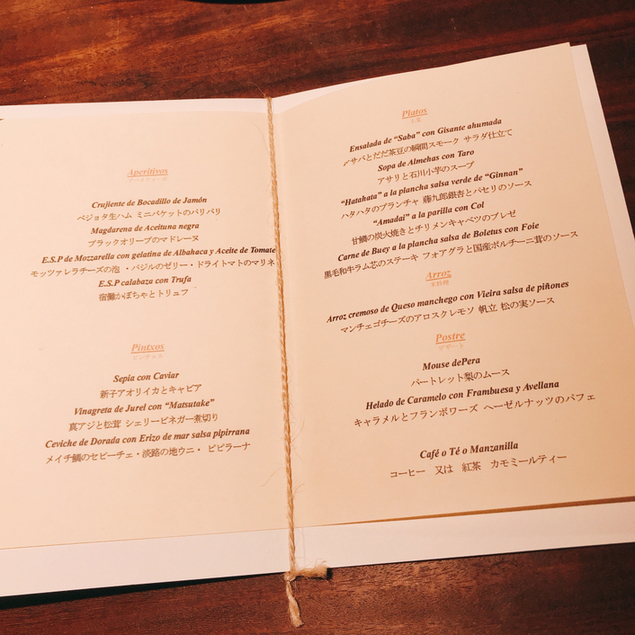 Aperitivos
Crujiente de Bocadillo de Jamón
ベジョタ生ハム ミニバケットのパリパリ
Magdarena de Aceituna negra
ブラックオリーブのマドレーヌ
E.S.P de Mozzarella con gelatina de Albahaca y Aceite de Tomate
モッツァレラチーズの泡 ・バジルのゼリー・ドライトマトのマリネ
E.S.P calabaza con Trufa
宿儺かぼちゃとトリュフ
Pintxos
ピンチョス
Sepia con Caviar
新子アオリイカとキャビア
Vinagreta de Jurel con “Matsutake”
真アジと松茸 シェリービネガー煮切り
Ceviche de Dorada con Erizo de mar salsa pipirrana
メイチ鯛のセビーチェ・淡路の地ウニ・ピピラーナ
Platos
Ensalada de “Saba” con Gisante ahumada
〆サバとだだ茶豆の瞬間スモーク サラダ仕立て
Sopa de Almehas con Taro
アサリと石川小芋のスープ
“Hatahata” a la plancha salsa verde de “Ginnan”
ハタハタのプランチャ 藤九郎銀杏とパセリのソース
“Amadai” a la parilla con Col
甘鯛の炭火焼きとチリメンキャベツのブレゼ
Carne de Buey a la plancha salsa de Boletus con Foie
黒毛和牛ラム芯のステーキ フォアグラと国産ポルチーニ茸のソース
Arroz
Arroz cremoso de Queso manchego con Vieira salsa de piñones
マンチェゴチーズのアロスクレモソ 帆立 松の実ソース
Postre
デザート
Mouse dePera
バートレット梨のムース
Helado de Caramelo con Frambuesa y Avellana
キャラメルとフランボワーズ ヘーゼルナッツのパフェ
Café o Té o Manzanilla
コーヒー 又は 紅茶 カモミールティー